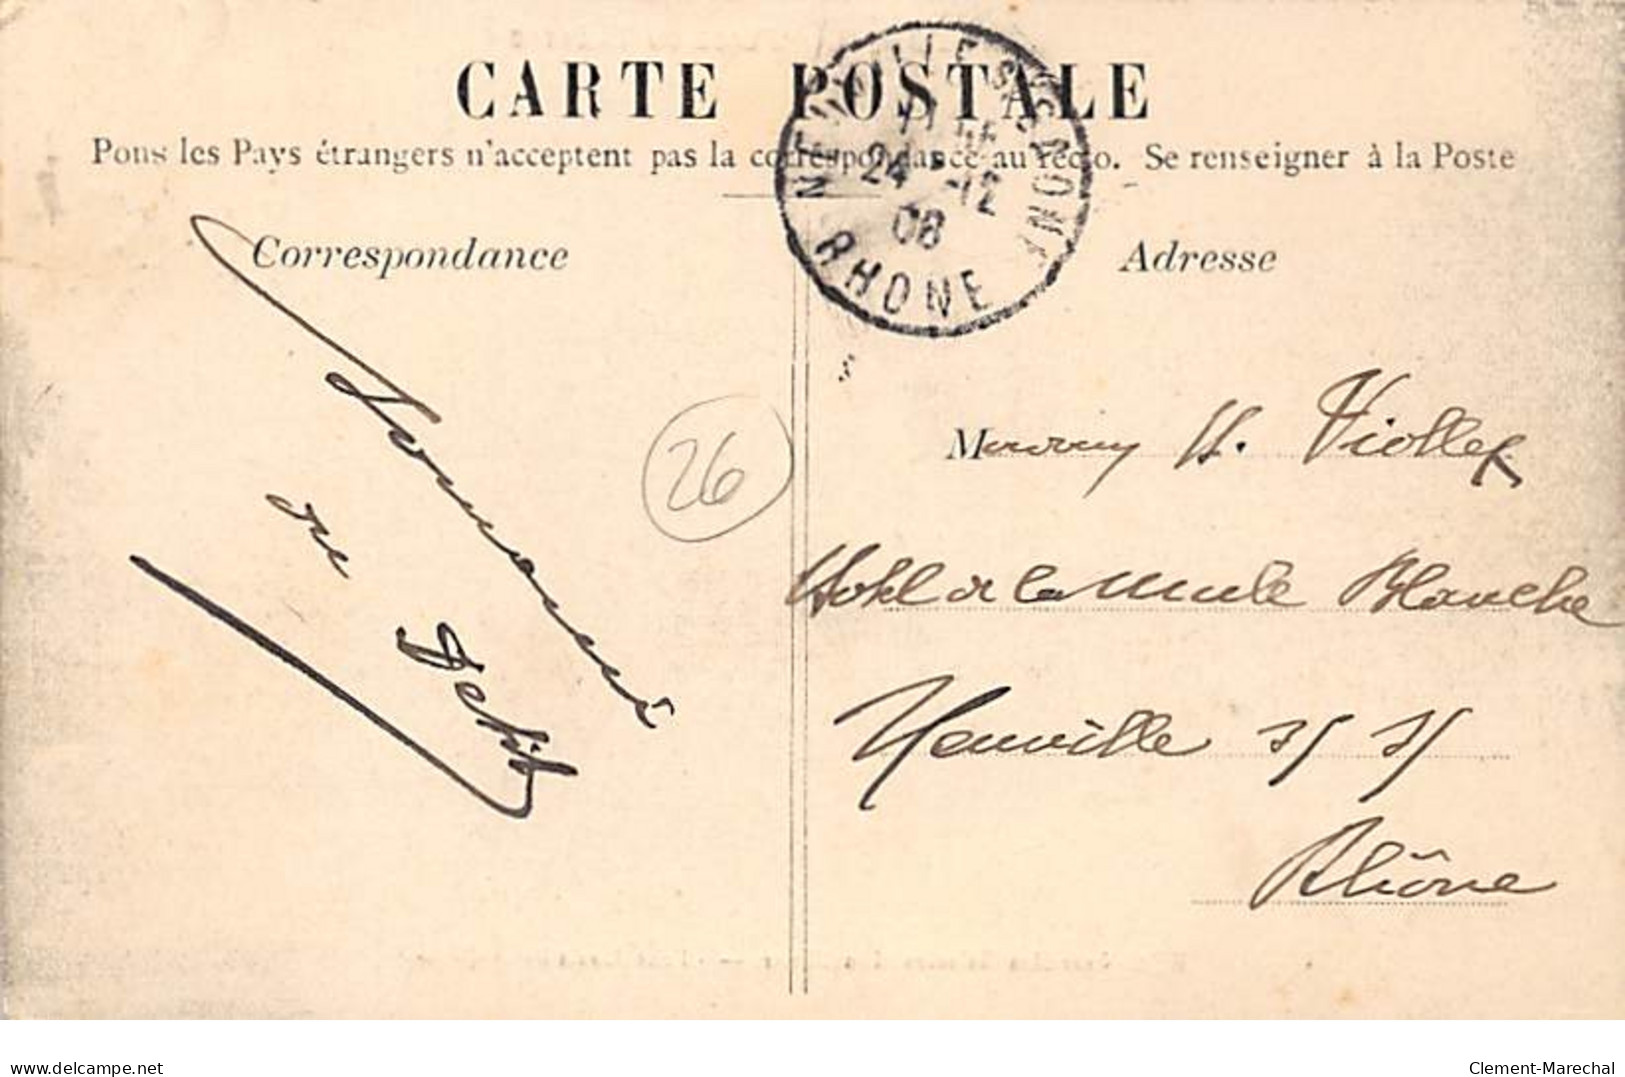 CARTE POSTALE
Pous les Pays étrangers n'acceptent pas la correspondance au recto. Se renseigner à la Poste
NEUVILLE SR SAONE
24 -12
08
RHONE
Correspondance
Adresse
de
Petit
26
M H. Viollet
Hotel de la Mule Blanche
Neuville s/ s/
Rhône
www.delcampe.net
Clement-Marechal